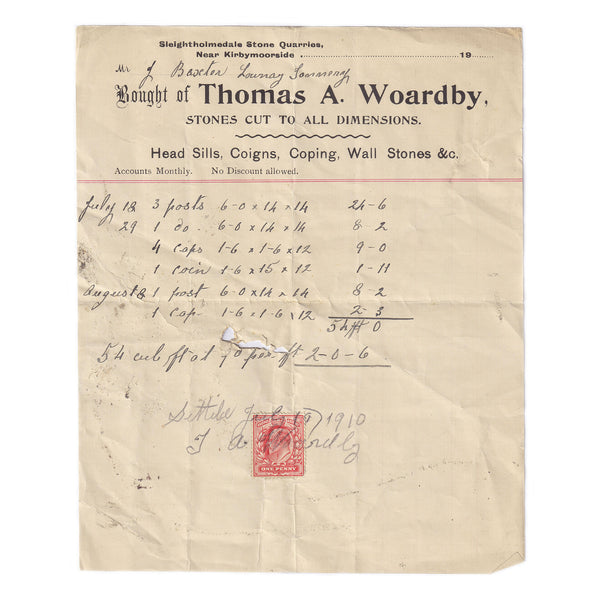 Sleightholmedale Stone Quarries,
Near Kirbymoorside 19
Mr J Baxter
Bought of Thomas A. Woardby,
STONES CUT TO ALL DIMENSIONS.
Head Sills, Coigns, Coping, Wall Stones &c.
Accounts Monthly. No Discount allowed.
July 18 3 posts 6-0 x 14 x 14 24-6
29 1 do. 6-0 x 14 x 14 8-2
4 caps 1-6 x 1-6 x 12 9-0
1 coin 1-6 x 15 x 12 1-11
August 8 1 post 6-0 x 14 x 14 8-2
1 cap 1-6 x 1-6 x 12 2-3
54 ft 0
54 cub ft at per ft 2-0-6
July 1910
T. A. Woardby
ONE PENNY